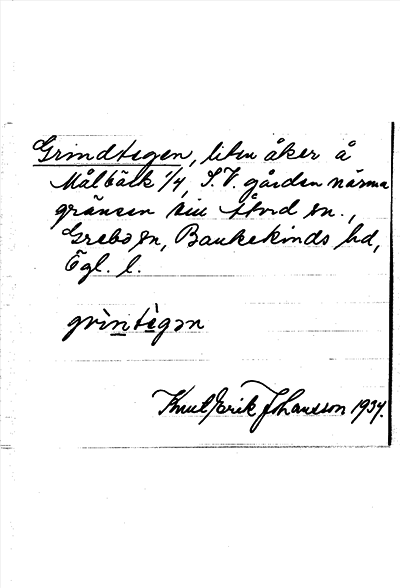 Grindtegen, liten åker å
Målbäck 1/4, S.V. gården närma
gränsen till Åtvid sn.,
Grebo sn, Bankekinds hd,
Ögl. l.
grìntègən
Knut Erik Johansson 1937.